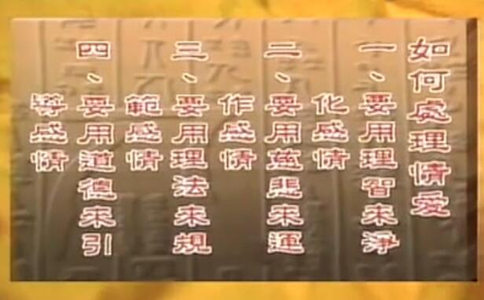 如何處理情愛
一、要用理智來淨
化感情
二、要用慈悲來運
作感情
三、要用理法來規
範感情
四、要用道德來引
導感情